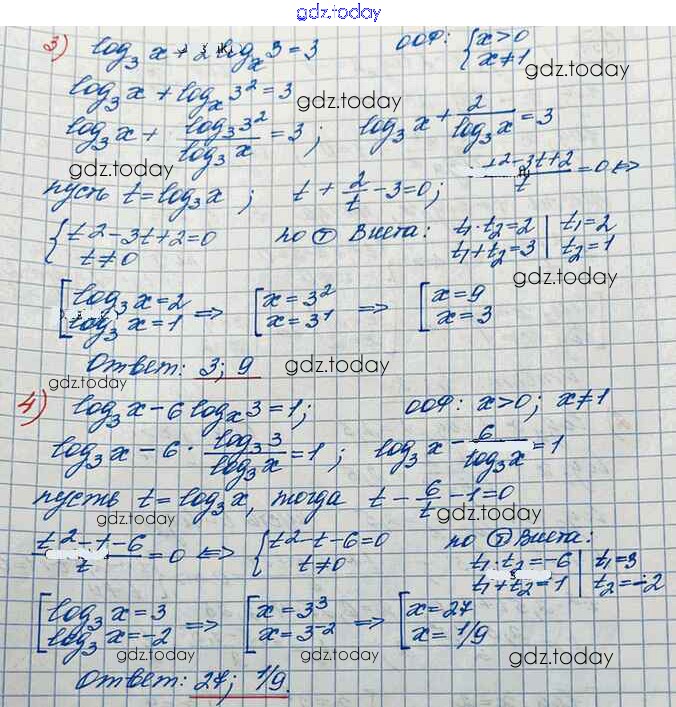 gdz.today
3) log₃ x + 2 logₓ 3 = 3 ООФ: { x > 0
x ≠ 1
gdz.today
log₃ x + logₓ 3² = 3
gdz.today
log₃ x + log₃ 3² / log₃ x = 3 ; log₃ x + 2 / log₃ x = 3
gdz.today
пусть t = log₃ x ; t + 2/t - 3 = 0 ; t² - 3t + 2 / t = 0 ⇔
{ t² - 3t + 2 = 0 по Ⓣ Виета: t₁ · t₂ = 2 | t₁ = 2
t ≠ 0 t₁ + t₂ = 3 | t₂ = 1
gdz.today
[ log₃ x = 2 ⇒ [ x = 3² ⇒ [ x = 9
log₃ x = 1 x = 3¹ x = 3
Ответ: 3; 9
gdz.today
gdz.today
4) log₃ x - 6 logₓ 3 = 1 ; ООФ: x > 0 ; x ≠ 1
log₃ x - 6 · log₃ 3 / log₃ x = 1 ; log₃ x - 6 / log₃ x = 1
пусть t = log₃ x, тогда t - 6/t - 1 = 0
gdz.today
gdz.today
t² - t - 6 / t = 0 ⇔ { t² - t - 6 = 0 по Ⓣ Виета:
t ≠ 0 t₁ · t₂ = -6 | t₁ = 3
t₁ + t₂ = 1 | t₂ = -2
[ log₃ x = 3 ⇒ [ x = 3³ ⇒ [ x = 27
log₃ x = -2 x = 3⁻² x = 1/9
gdz.today
gdz.today
gdz.today
Ответ: 27; 1/9.